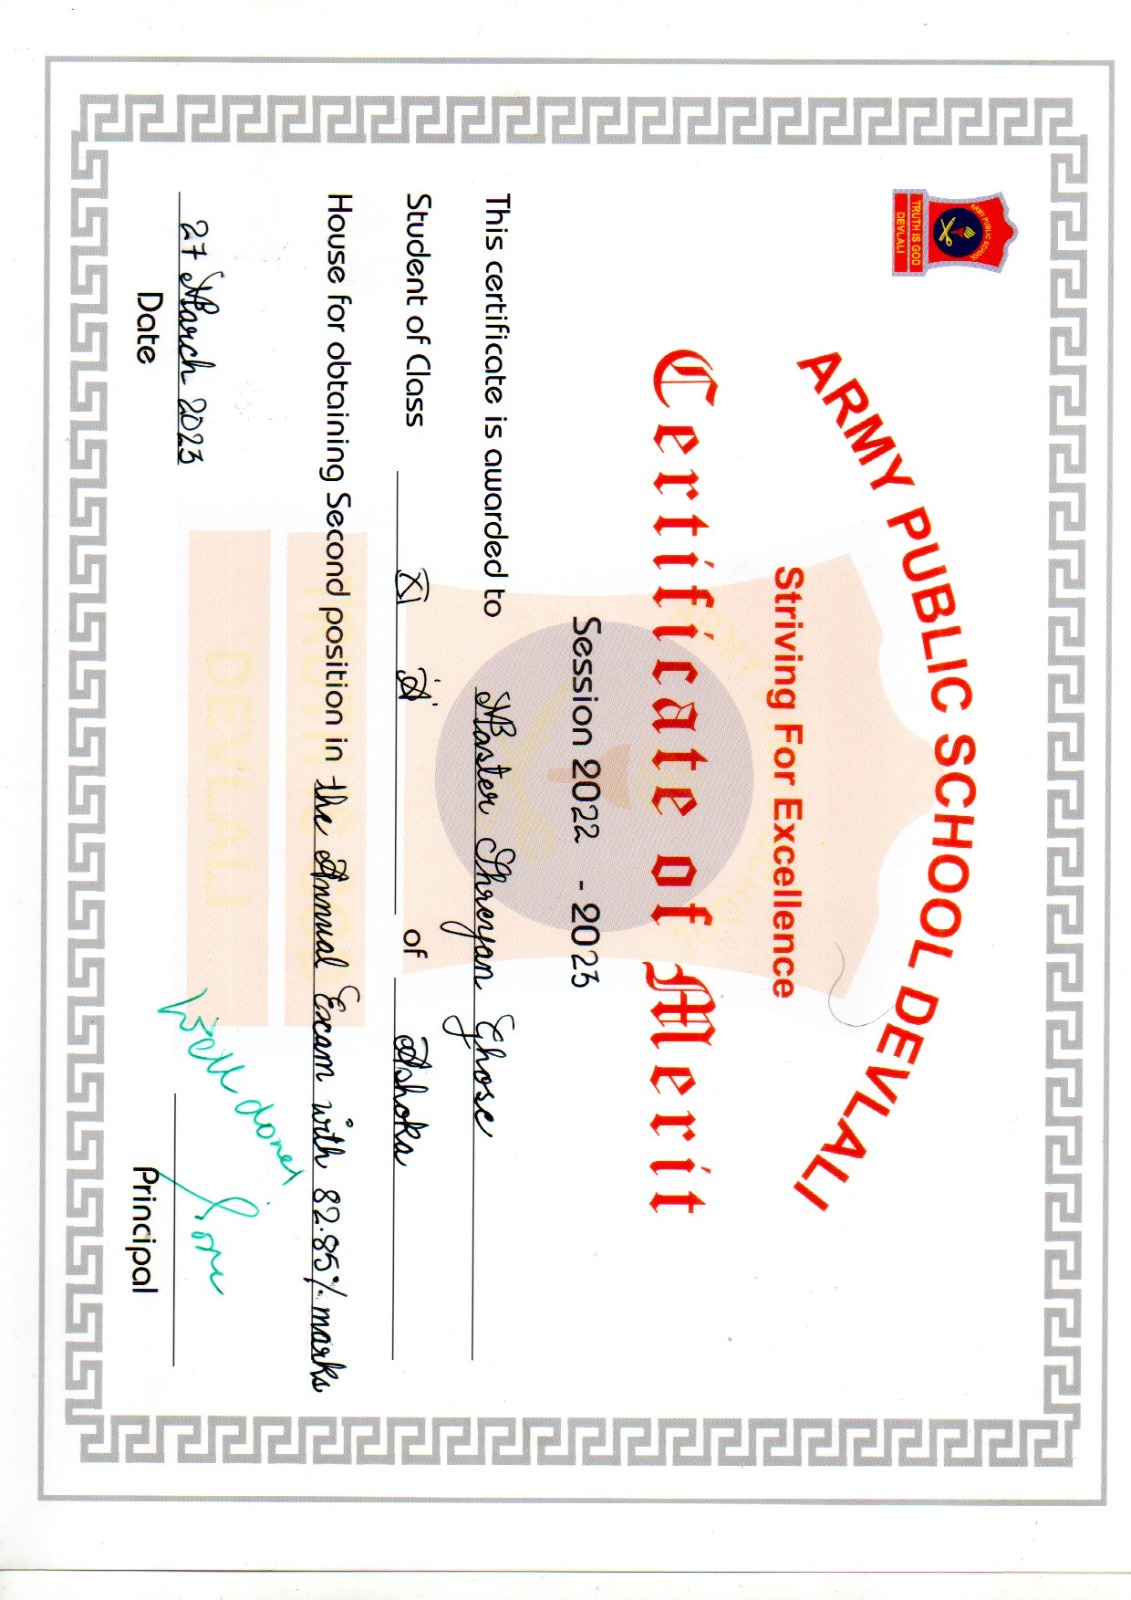 ARMY PUBLIC SCHOOL
TRUTH IS GOD
DEVLALI
ARMY PUBLIC SCHOOL DEVLALI
Striving For Excellence
Certificate of Merit
Session 2022 - 2023
This certificate is awarded to Master Shreyan Ghose
Student of Class XI 'A' of Ashoka
House for obtaining Second position in the Annual Exam with 82.85% marks
Well done
27 March 2023
Date
Principal
ARMY PUBLIC SCHOOL
TRUTH IS GOD
DEVLALI